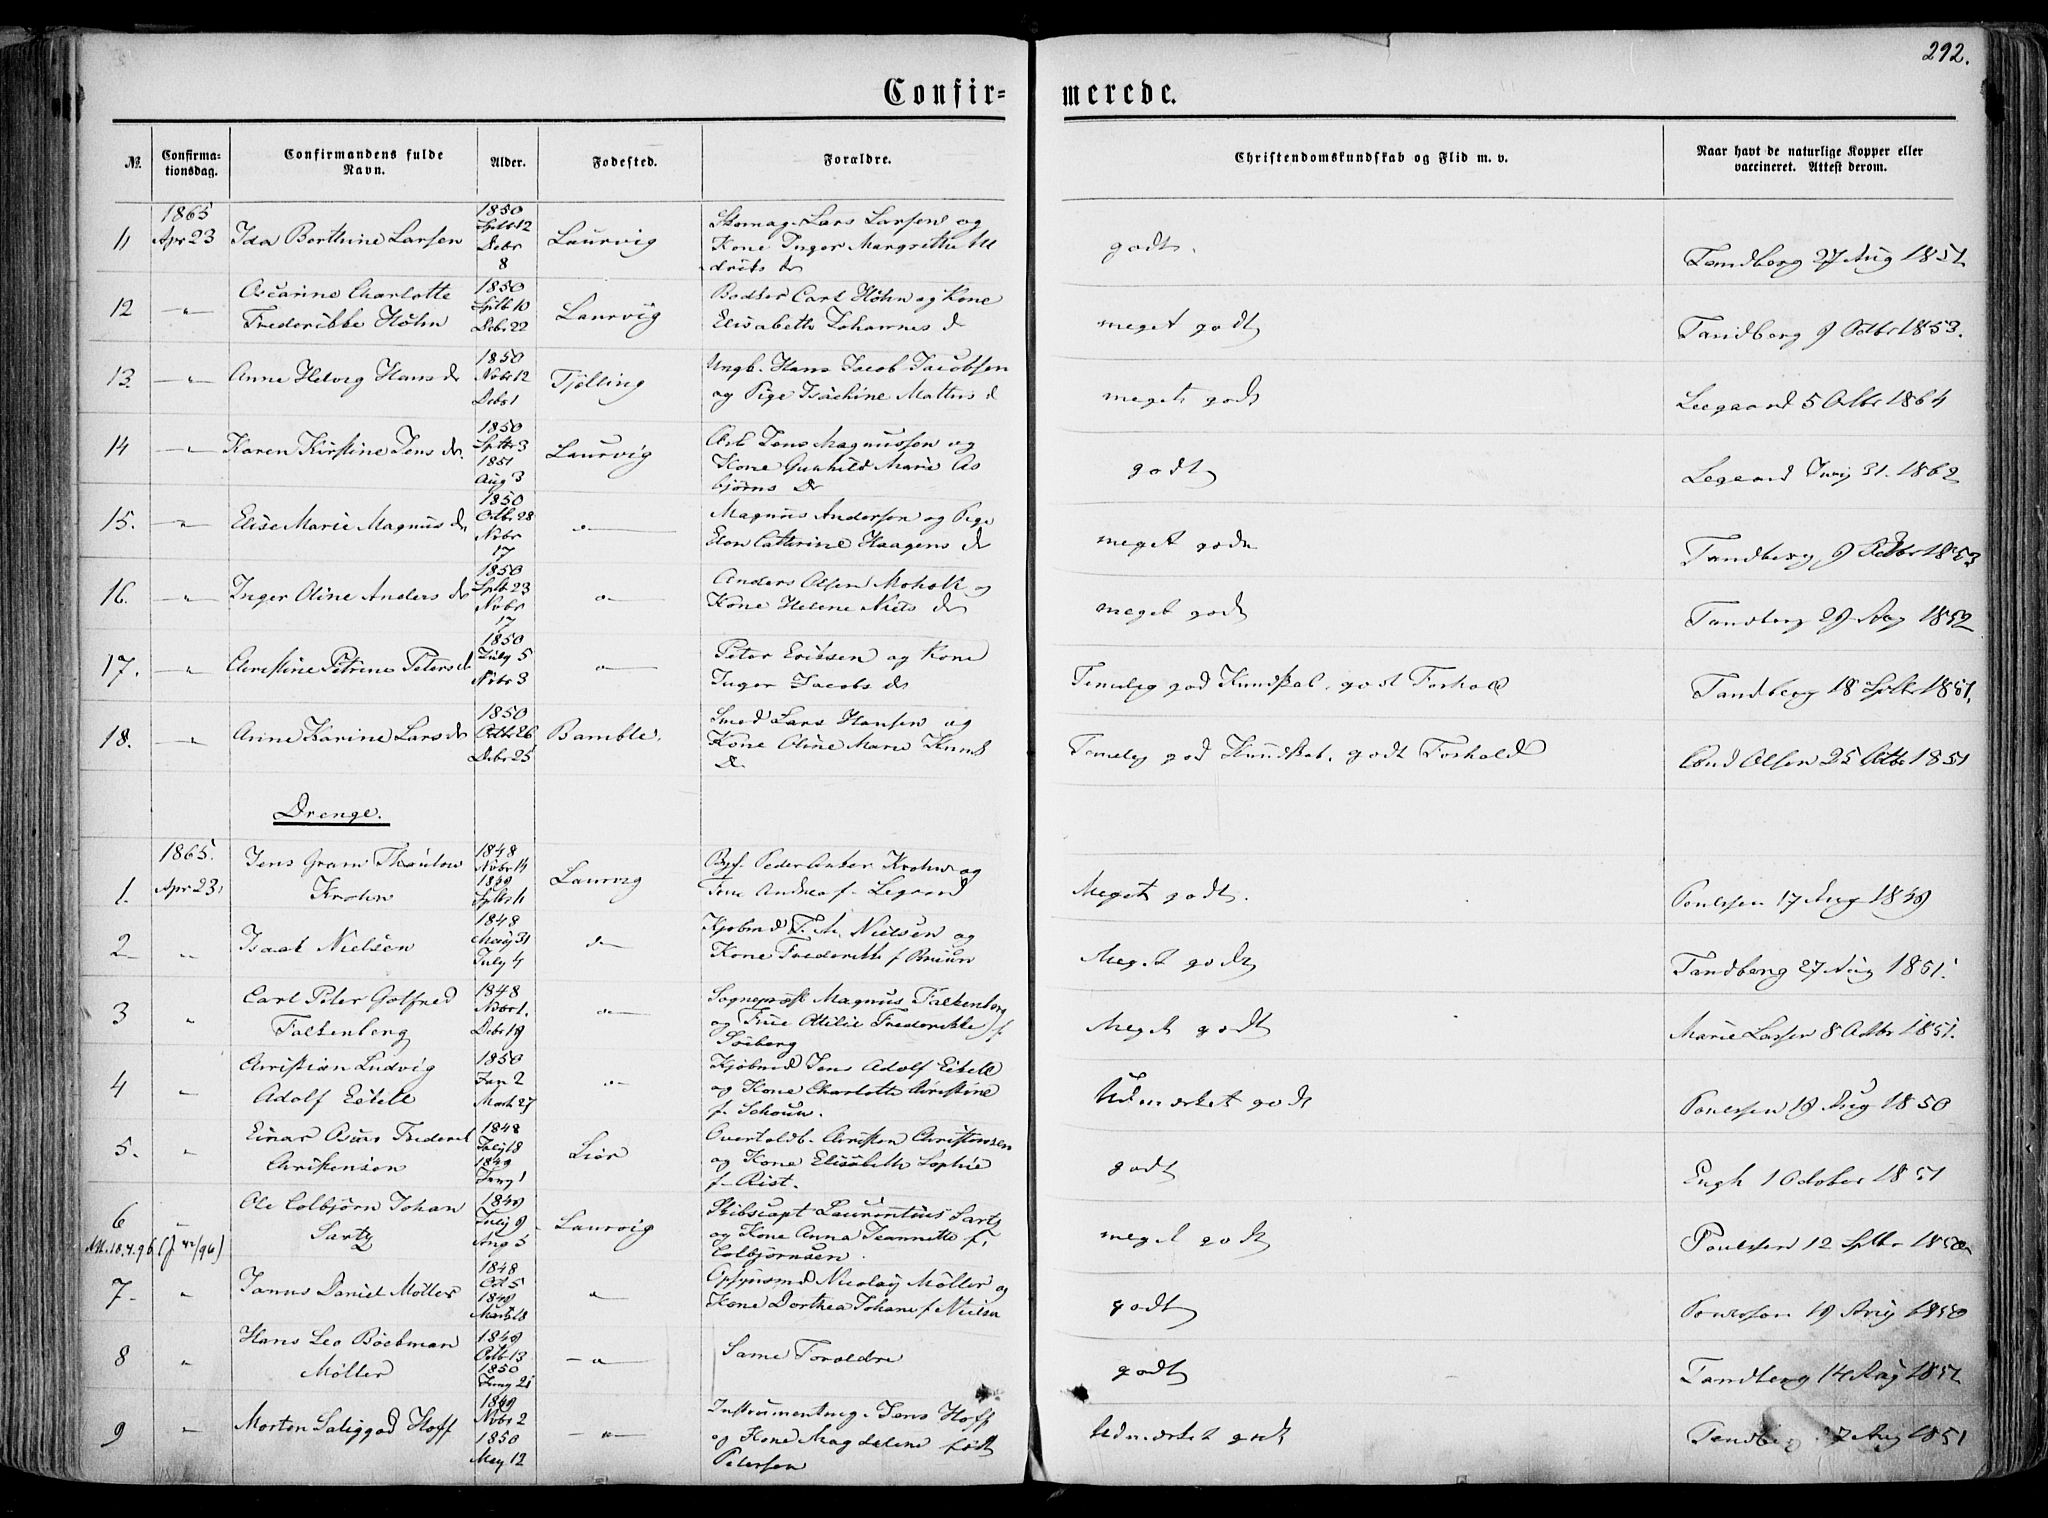 292.
Confir=
merede.
№
Confirma-
tionsdag.
Confirmandens fulde
Navn.
Alder.
Fødested.
Forældre.
Christendomskundskab og Flid m. v.
Naar havt de naturlige Kopper eller
vaccineret. Attest derom.
11 1865 Apr 23 Ida Berthine Larsen 1850 Sptb 12 Debr 8 Laurvig Skomag. Lars Larsen og
Kone Inger Margrethe
godt. Tandberg 27 Aug 1851
12 -"- Oscarine Charlotte
Frederikke Höhn 1850 Sptb 10 Debr 22 Laurvig Bødker Carl Höhn og Kone
Elisabeth Johannes d
meget godt Tandberg 9 Octbr 1853.
13. -"- Anne Helvig Hans d 1850 Nvbr 12 Debr 1 Tjölling Ungk. Hans Jacob Jacobsen
og Pige Isachine Mattias d
meget godt Legaard 5 Octbr 1864
14 -"- Karen Kirstine Jens dr. 1850 Sptbr 3 1851 Aug 3 Laurvig Arb Jens Magnussen og
Kone Gunhild Marie As
björns Dr
godt Legaard 31. 1862
15. -"- Elise Marie Magnus dr 1850 Octbr 28 Nvbr 17 -"- Magnus Andersen og Pige
Elen Cathrine Haagens dr
meget godt Tandberg 9 Octbr 1853
16. -"- Inger Oline Anders dr 1850 Sptb 23 Nvbr 17 -"- Anders Olsen Moholt og
Kone Helene Niels dr
meget godt Tandberg 29 Aug 1852
17. -"- Christine Petrine Peters d 1850 July 5 Nvbr 3 -"- Peter Ericsen og Kone
Inger Jacobs dr
Temelig god Kundskab. godt Forhold Tandberg 18 Sptbr 1851.
18. -"- Anne Karine Lars dr 1850 Octb 26 Debr 25 Bamble. Smed Lars Hansen og
Kone Oline Marie Knuds
Dr
Temelig god Kundskab. godt Forhold Olsen 25 Octbr 1851
Drenge.
1. 1865. Apr 23. Jens Gram Thaulow
Krohn 1848 Nvbr 14 1849 Sptb 11 Laurvig Byf. Peder Anker Krohn og
Frue Andrea f. Legaard
Meget godt. Poulssen 17 Aug 1849
2 " Isaak Nielsen 1848 May 31 July 4 do Kjøbmd T. M. Nielsen og
Kone Frederikke f Bruun
Meget godt Tandberg 27 Aug 1851.
3 " Carl Peter Gotfred
Falkenberg 1848 Nvbr 1. Debr 19 -"- Sognepræst Magnus Falkenberg
og Frue Ottilie Frederikke f.
Söeberg
Meget godt Marie Larsen 8 Octbr 1851.
4 " Christian Ludvig
Adolf Esbell 1850 Jan 2 Marts 27 -"- Kjøbmd Jens Adolf Esbell
og Kone Charlotte Christine
f. Schouw.
Udmærket godt Poulssen 19 Aug 1850
5. " Einar Frederik
Christensen 1848 July 18 1849 Juny 1 Lier Overtoldb. Christen Christensen
og Kone Elisabeth Sophie
f. Rist.
godt Engh 1 October 1851
6 " Ole Colbjörn Johan
Sartz 1849 July 9 Aug 5 Laurvig Skibscapt Laurentius Sartz
og Kone Anna Jeannette f.
Colbjörnsen.
meget godt Poulssen 12 Sptbr 1850
Att. 10.4.96 (J 42/96)
7. " Janus Daniel Möller 1848 Oct 5 1849 Marts 18 " Opsynsmd Nicolay Möller og
Kone Dorthea Johane f Nielsen
godt Poulssen 19 Aug 1850
8 " Hans Leo Böckman
Möller 1849 Octb 13 1850 Juny 21 -"- Same Forældre
godt Tandberg 14 Aug 1851
9 " Morten Saliggad Hoff 1849 Nvbr 2 1850 May 12 -"- Instrumentmg. Jens Hoff
og Kone Magdalene født
Petersen
Udmærket godt Tandberg 27 Aug 1851